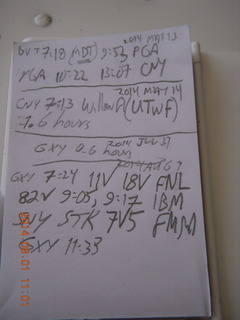 BVT 7:18 (MDT) 9:53 PGA
2014 MAY 13
PGA 10:22 13:07 CNY
2014 MAY 14
CNY 7:13 Willow P (UTWF)
7.6 hours
GXY 0.6 hour 2014 JUL 31
2014 AUG
GXY 7:24 11V 18V FNL
82V 9:05, 9:17 IBM
SNY STK 7V5 FMM
GXY 11:33